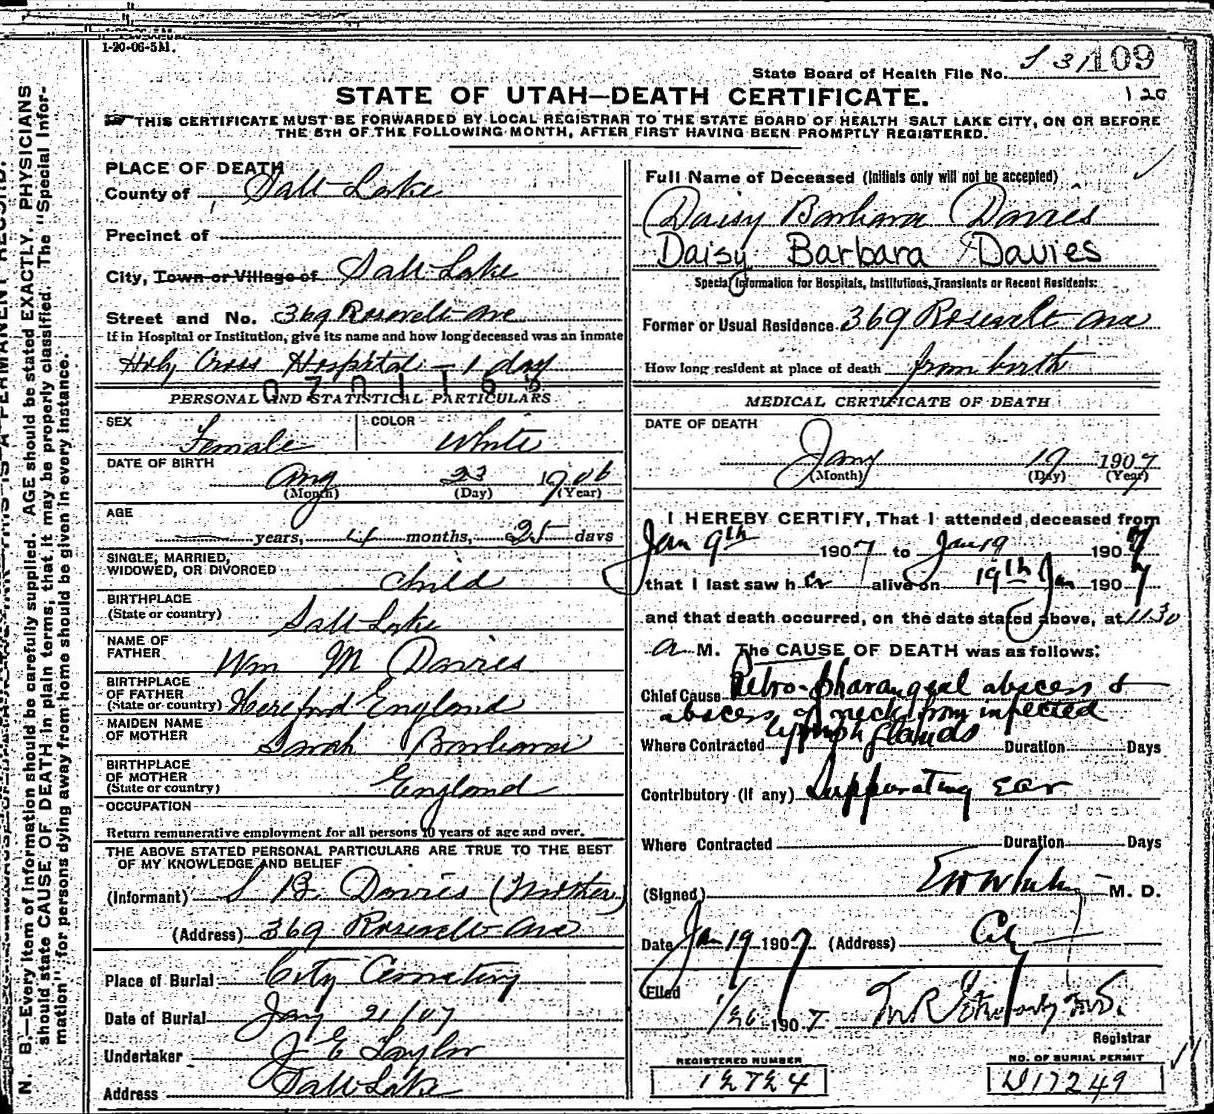 1-20-06-5M.
State Board of Health File No. 109
120
STATE OF UTAH—DEATH CERTIFICATE.
THIS CERTIFICATE MUST BE FORWARDED BY LOCAL REGISTRAR TO THE STATE BOARD OF HEALTH SALT LAKE CITY, ON OR BEFORE
THE 5TH OF THE FOLLOWING MONTH, AFTER FIRST HAVING BEEN PROMPTLY REGISTERED.
PLACE OF DEATH
County of Salt Lake
Precinct of
City, Town or Village of Salt Lake
Street and No. 369 Rosevelt Ave
If in Hospital or Institution, give its name and how long deceased was an inmate
Holy Cross Hospital - 1 day
0701165
PERSONAL AND STATISTICAL PARTICULARS
SEX Female COLOR White
DATE OF BIRTH
Aug 23 1906
(Month) (Day) (Year)
AGE
years, 4 months, 25 days
SINGLE, MARRIED,
WIDOWED, OR DIVORCED child
BIRTHPLACE
(State or country) Salt Lake
NAME OF
FATHER Wm M Davies
BIRTHPLACE
OF FATHER
(State or country) Hereford England
MAIDEN NAME
OF MOTHER Sarah Barbara
BIRTHPLACE
OF MOTHER
(State or country) England
OCCUPATION
Return remunerative employment for all persons 10 years of age and over.
THE ABOVE STATED PERSONAL PARTICULARS ARE TRUE TO THE BEST
OF MY KNOWLEDGE AND BELIEF
(Informant) S B Davies (Mother)
(Address) 369 Rosevelt Ave
Place of Burial City Cemetery
Date of Burial Jany 21/07
Undertaker J E Taylor
Address Salt Lake
Full Name of Deceased (Initials only will not be accepted)
Daisy Barbara Davies
Daisy Barbara Davies
Special Information for Hospitals, Institutions, Transients or Recent Residents:
Former or Usual Residence 369 Rosevelt Ave
How long resident at place of death from birth
MEDICAL CERTIFICATE OF DEATH
DATE OF DEATH
Jany 19 1907
(Month) (Day) (Year)
I HEREBY CERTIFY, That I attended deceased from
Jan 9th 1907 to Jan 19 1907
that I last saw her alive on 19th Jan 1907
and that death occurred, on the date stated above, at 11.30
a M. The CAUSE OF DEATH was as follows:
Chief Cause Retro-pharangeal abscess &
abscess of neck from infected
lymph glands
Where Contracted Duration Days
Contributory (If any) Suppurating ear
Where Contracted Duration Days
(Signed) M. D.
Date Jan 19 1907 (Address) City
Filed
1/26 1907
Registrar
REGISTERED NUMBER
12724
NO. OF BURIAL PERMIT
D17249
N. B.—Every item of information should be carefully supplied. AGE should be stated EXACTLY. PHYSICIANS
should state CAUSE OF DEATH in plain terms, that it may be properly classified. The "Special Infor-
mation" for persons dying away from home should be given in every instance.